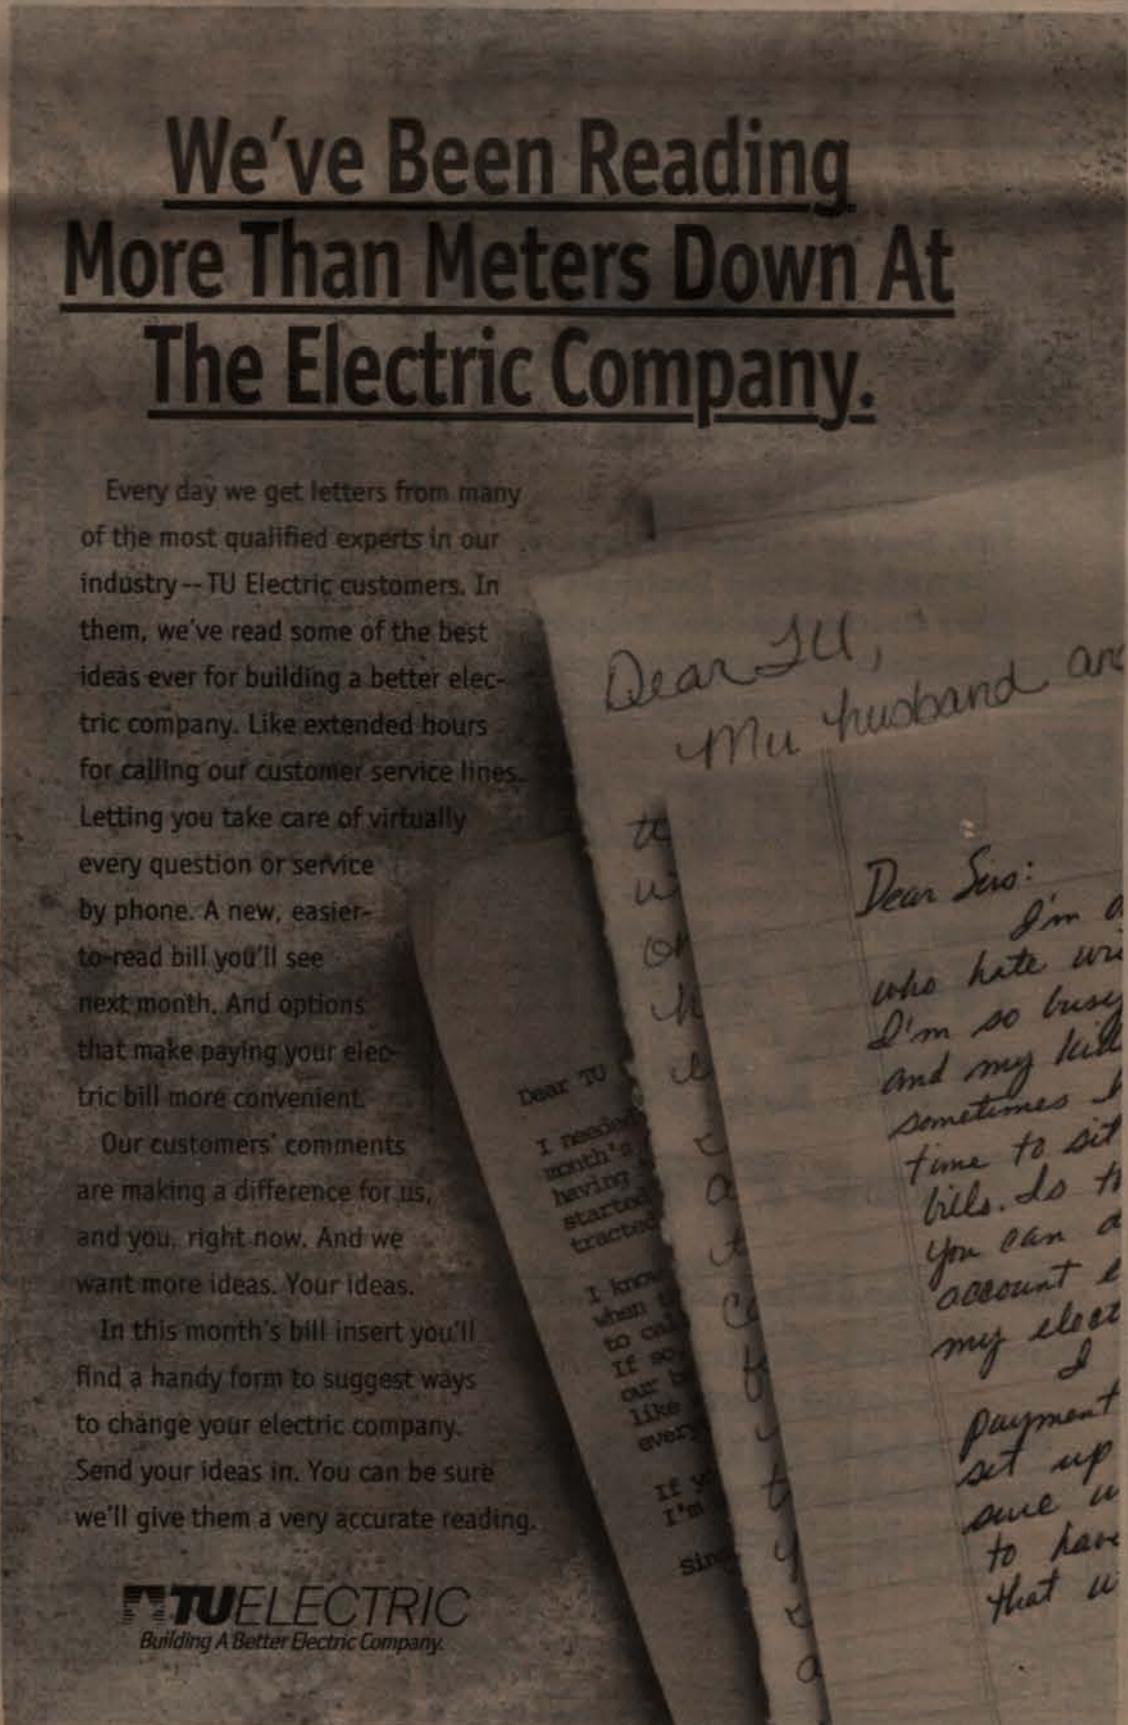 We've Been Reading
More Than Meters Down At
The Electric Company.
Every day we get letters from many
of the most qualified experts in our
industry -- TU Electric customers. In
them, we've read some of the best
ideas ever for building a better elec-
tric company. Like extended hours
for calling our customer service lines.
Letting you take care of virtually
every question or service
by phone. A new, easier-
to-read bill you'll see
next month. And options
that make paying your elec-
tric bill more convenient.
Our customers' comments
are making a difference for us,
and you, right now. And we
want more ideas. Your ideas.
In this month's bill insert you'll
find a handy form to suggest ways
to change your electric company.
Send your ideas in. You can be sure
we'll give them a very accurate reading.
TU ELECTRIC
Building A Better Electric Company.
Dear TU,
My husband and
Dear TU
I needed
month's
having
started
tracted
I know
when
to cal
If so,
our b
like
every
If yo
I'm
Sinc
Dear Sirs:
I'm a
who hate wri
I'm so busy
and my kid
sometimes I
time to sit
bills. So th
you can d
account e
my elect
I
payment
set up
sure w
to have
that w